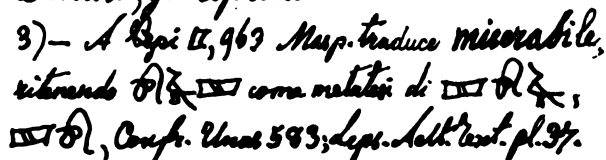 3) — A Pepi II, 963 Masp. traduce miserabile,
ritenendo come metatesi di ,
, Confr. Unas 583; Leps. Aelt. Text. pl. 37.